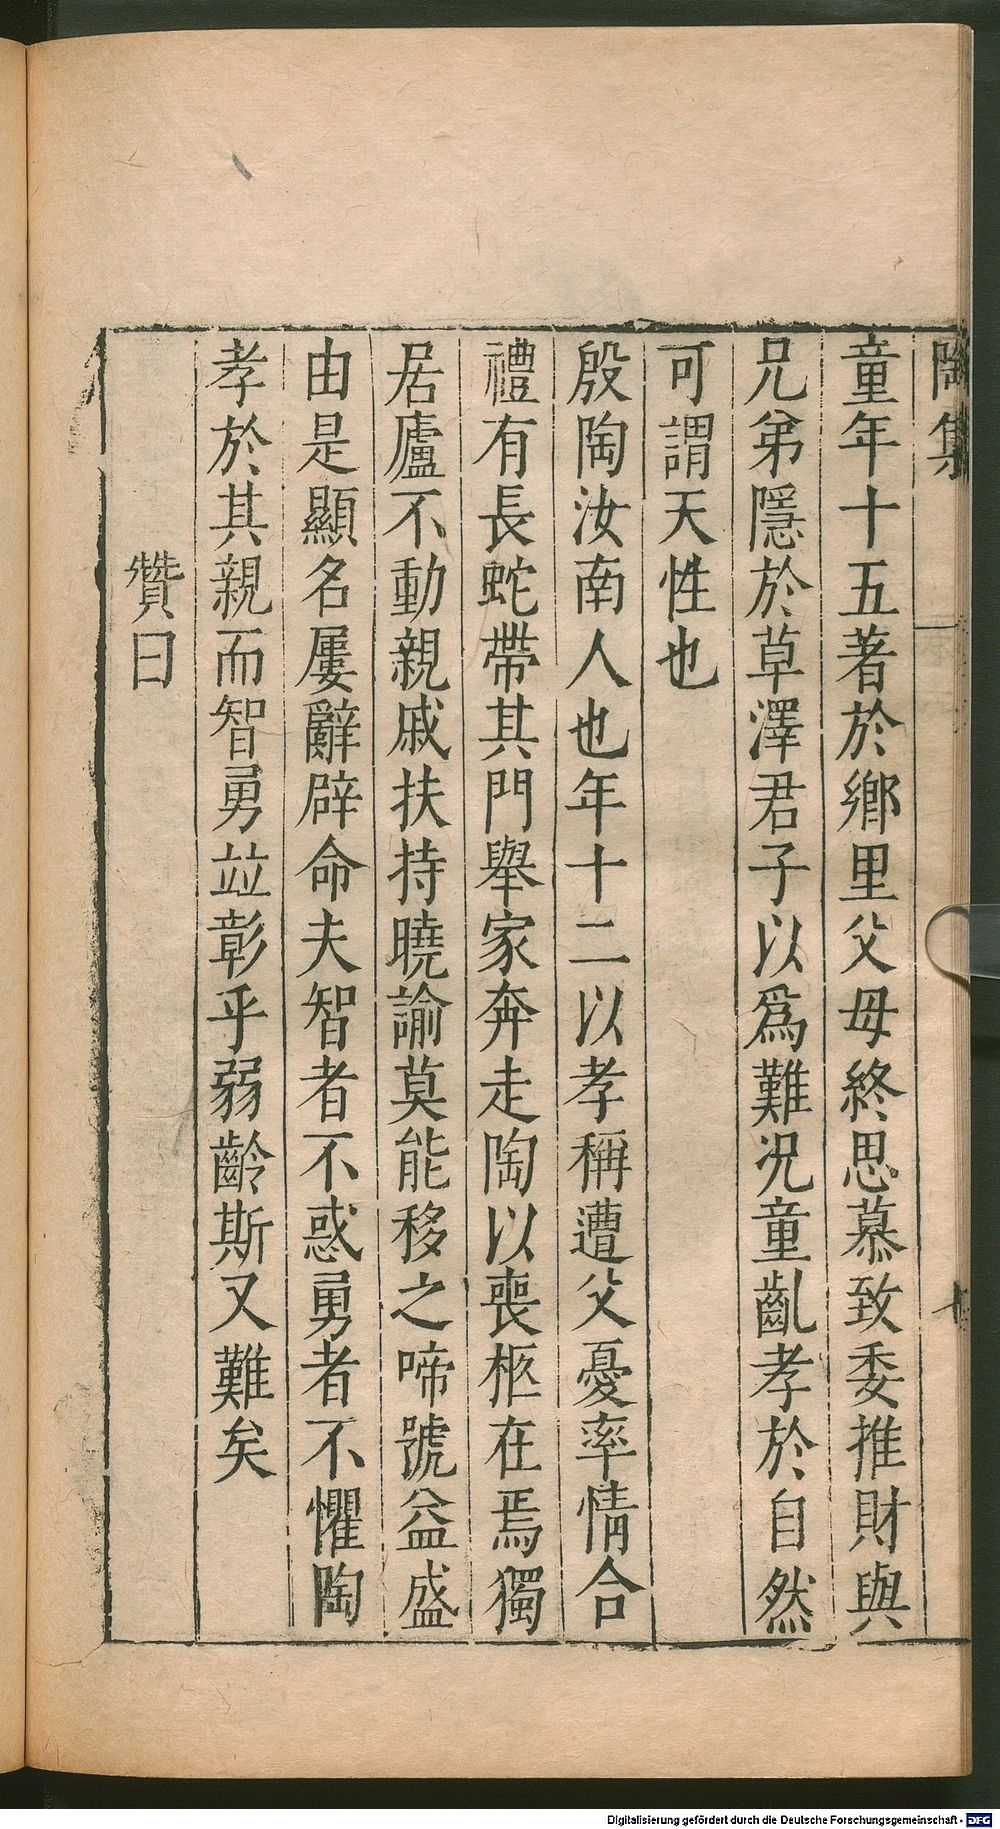 陶集
童年十五著於鄉里父母終思慕致委推財與
兄弟隱於草澤君子以爲難況童齓孝於自然
可謂天性也
殷陶汝南人也年十二以孝稱遭父憂率情合
禮有長蛇帶其門舉家奔走陶以喪柩在焉獨
居廬不動親戚扶持曉諭莫能移之啼號益盛
由是顯名屢辭辟命夫智者不惑勇者不懼陶
孝於其親而智勇竝彰乎弱齡斯又難矣
贊曰
Digitalisierung gefördert durch die Deutsche Forschungsgemeinschaft - DFG